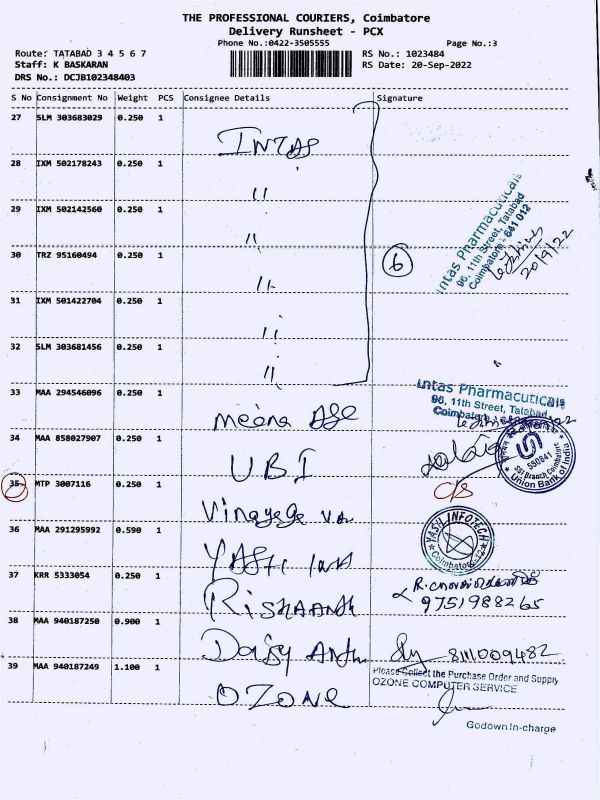 THE PROFESSIONAL COURIERS, Coimbatore
Delivery Runsheet - PCX
Phone No.:0422-3505555
Page No.:3
Route: TATABAD 3 4 5 6 7
RS No.: 1023484
Staff: K BASKARAN
RS Date: 20-Sep-2022
DRS No.: DCJB102348403
S No Consignment No Weight PCS Consignee Details Signature
27 SLM 303683029 0.250 1
INTAS
28 IXM 502178243 0.250 1
"
29 IXM 502142560 0.250 1
"
Intas Pharmacuticals
96, 11th Street, Tatabad
Coimbatore - 641 012
20/9/22
30 TRZ 95160494 0.250 1
6
"
31 IXM 501422704 0.250 1
"
32 SLM 303681456 0.250 1
"
33 MAA 294546096 0.250 1
Intas Pharmacuticals
96, 11th Street, Tatabad
Coimbatore
Meena
34 MAA 858027907 0.250 1
UBI
550841
SSI Branch Coimbatore
Union Bank of India
35 MTP 3007116 0.250 1
C/S
Vinayega
36 MAA 291295992 0.590 1
YASH INFOTECH
Coimbatore-12
37 KRR 5333054 0.250 1
R.
9751988265
38 MAA 940187250 0.900 1
Daisy
8111009482
39 MAA 940187249 1.100 1
OZONE
Please Collect the Purchase Order and Supply
OZONE COMPUTER SERVICE
Godown In-charge